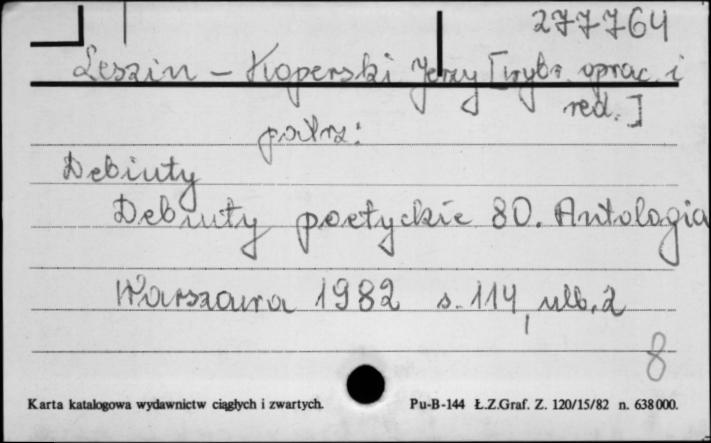 277764
Leszin-Koperski Jerzy [wybr. oprac. i
red.]
patrz:
Debiuty
Debiuty poetyckie 80. Antologia
Warszawa 1982 s. 114, ulb. 2
8
Karta katalogowa wydawnictw ciągłych i zwartych. Pu-B-144 Ł.Z.Graf. Z. 120/15/82 n. 638000.